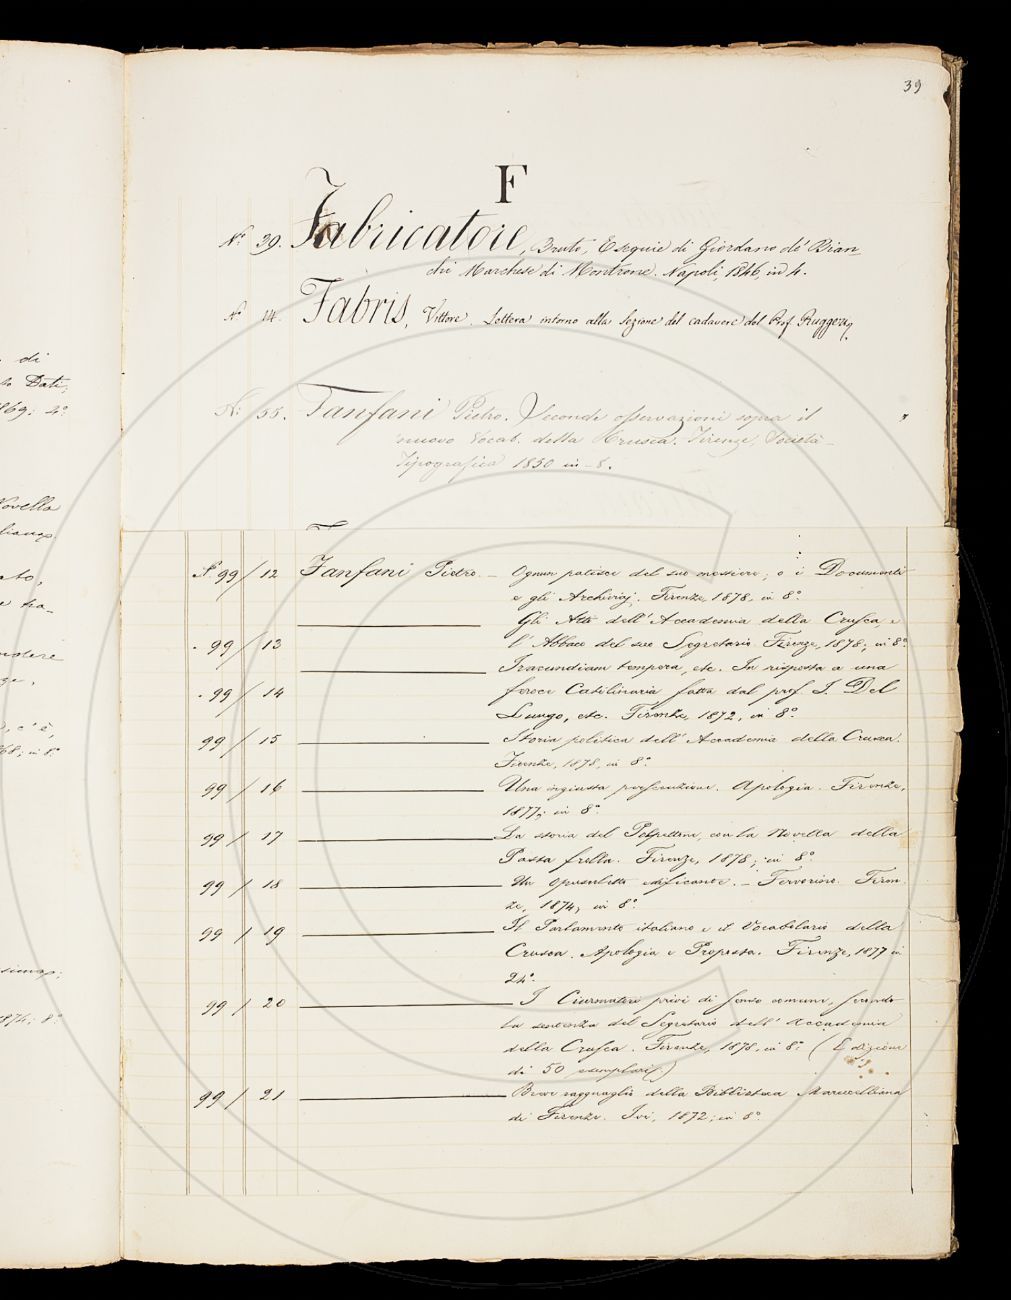 39
F
No. 39. Fabricatore, Bruto, Esequie di Giordano de' Bian-
chi Marchese di Montrone. Napoli, 1846, in 4.
No 14. Fabris, Vittore. Lettera intorno alla Sezione del cadavere del Prof. Ruggeri,
N. 55. Fanfani Pietro. Seconde osservazioni sopra il
nuovo Vocab. della Crusca. Firenze, Società
Tipografica 1850 in-8.
N. 99/12 Fanfani Pietro. - Ognun patisce del suo mestiere; o i Documenti
e gli Archivisj. Firenze, 1878, in 8°.
Gli Atti dell'Accademia della Crusca e
99/13 l'Abbaco del suo Segretario. Firenze, 1878; in 8°.
Iracundiam tempera, etc. In risposta a una
99/14 feroce Catilinaria fatta dal prof. I. Del
Lungo, etc. Firenze, 1872, in 8°.
99/15 Storia politica dell'Accademia della Crusca.
Firenze, 1878, in 8°.
99/16 Una ingiusta persecuzione. Apologia. Firenze,
1877; in 8°.
99/17 La storia del con la Novella della
Posta frolla. Firenze, 1878; in 8°.
99/18 Un Opuscolista edificante. - Fervorino. Firen-
ze, 1874, in 8°.
99/19 Il Parlamento italiano e il Vocabolario della
Crusca. Apologia e Proposta. Firenze, 1877 in
24°.
99/20 I Ciurmatori privi di senso comune, secondo
la sentenza del Segretario dell'Accademia
della Crusca. Firenze, 1878, in 8°. (Edizione
di 50 esemplari.)
99/21 Breve ragguaglio della Biblioteca Marucelliana
di Firenze. Ivi, 1872; in 8°.
di
Dati,
1869; 4°.
Novella
ato,
e tra-
ndere
c'è,
in 8°
1874; 8°.